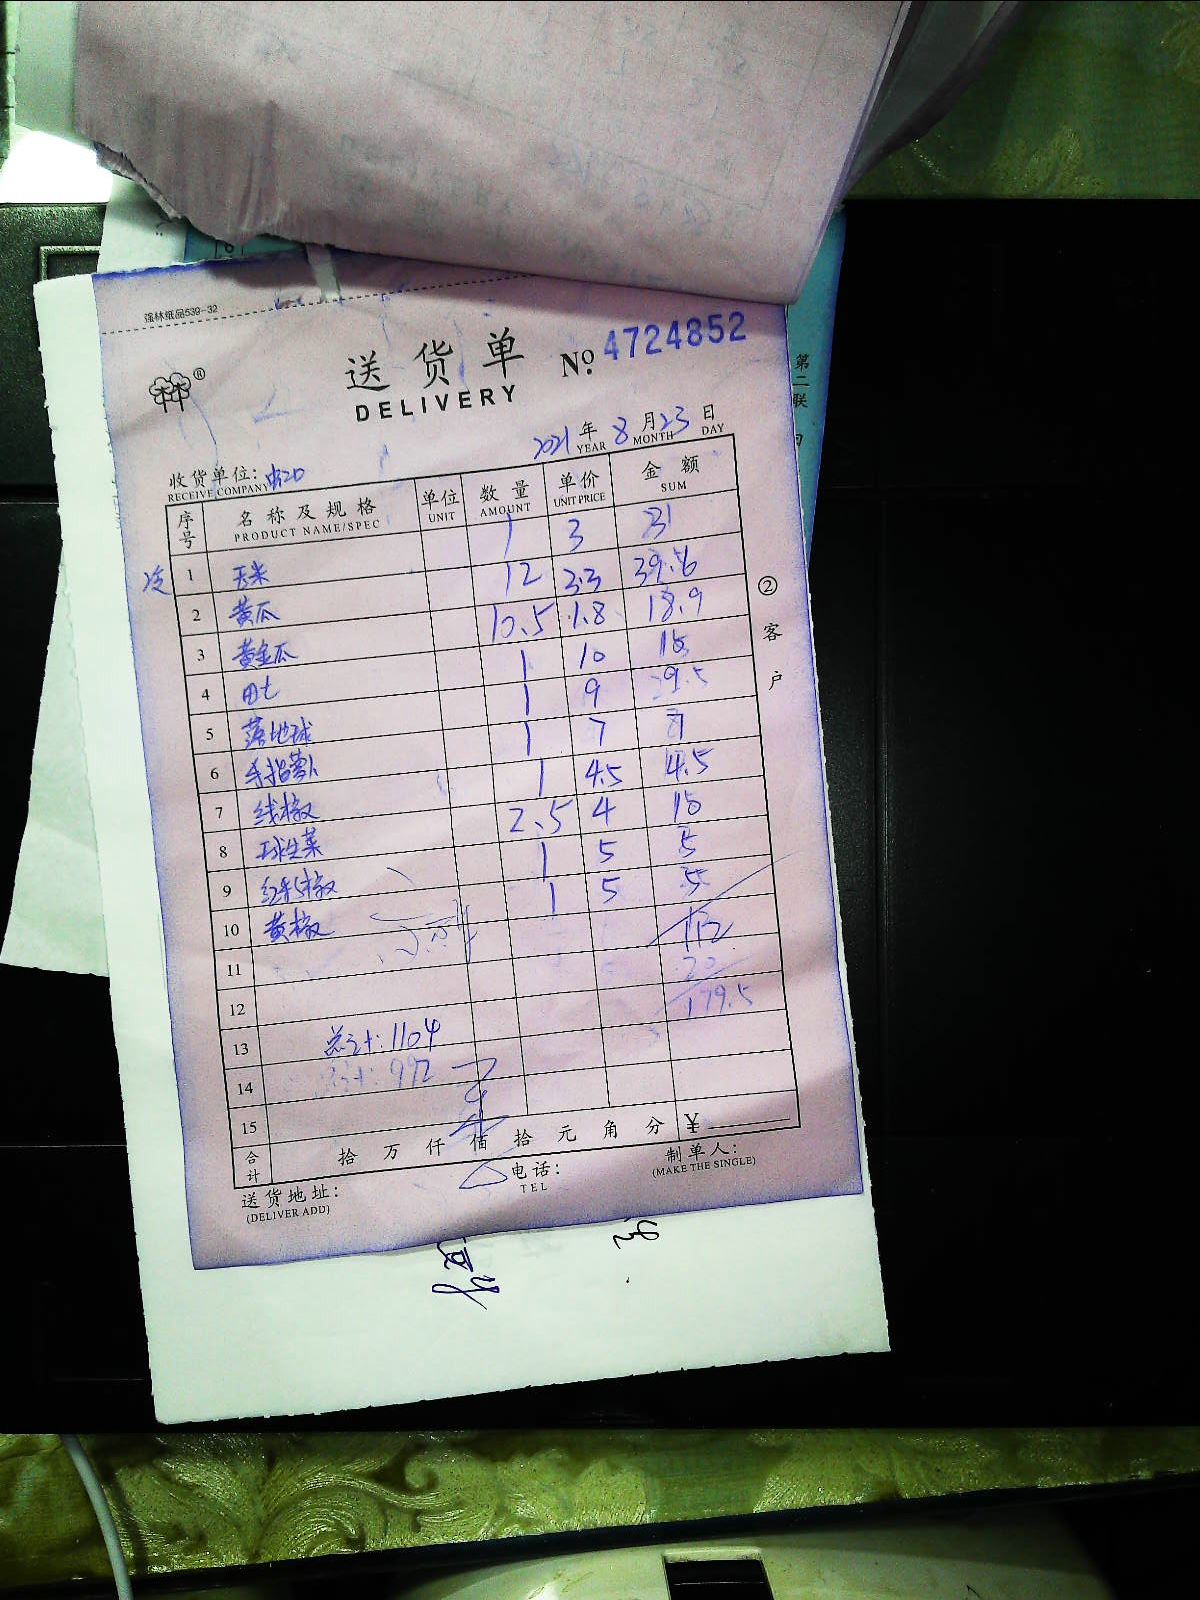 强林纸品539-32
送货单 No. 4724852
DELIVERY
®
2021年 8月23日
YEAR MONTH DAY
收货单位：
RECEIVE COMPANY
序号 名称及规格 单位 数量 单价 金额
PRODUCT NAME/SPEC UNIT AMOUNT UNIT PRICE SUM
1 玉米 1 3
2 黄瓜 12 3.3 39.6
3 黄金瓜 10.5 1.8 18.9
4 1 10
5 落地球 1 9
6 手指萝卜 1 7
7 线椒 1 4.5 4.5
8 球生菜 2.5 4 10
9 红彩椒 1 5 5
10 黄椒 1 5 5
112
11
12 179.5
13 总计：1104
14 992
15
合计 拾 万 仟 佰 拾 元 角 分 ¥
送货地址： 电话： 制单人：
(DELIVER ADD) TEL (MAKE THE SINGLE)
②客户
第二联